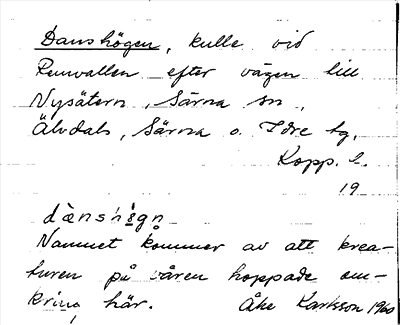 Danshögen, kulle vid
Renvallen efter vägen till
Nysätern, Särna sn.,
Älvdals, Särna o. Idre tg.
Kopp. l.
19
Namnet kommer av att krea-
turen på våren hoppade om-
kring här. Åke Karlsson 1960